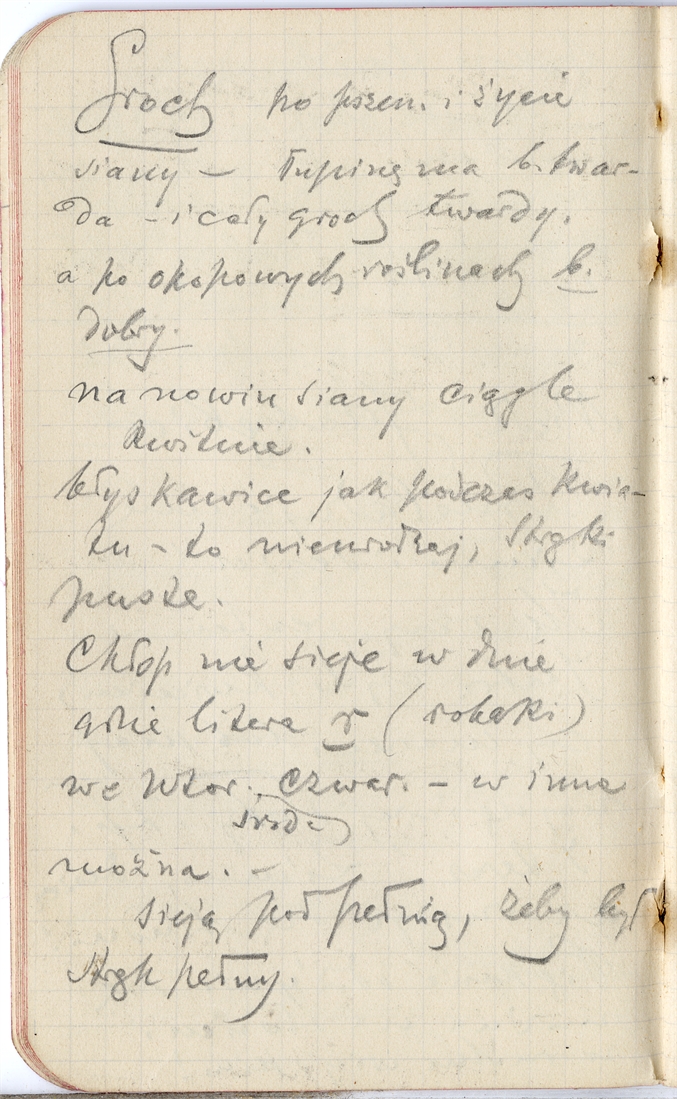 Groch po pszen. i życie
siany – łupinę ma b. twar-
da – i cały groch twardy.
a po okopowych roślinach b.
dobry.
na nowin siany ciągle
kwitnie.
błyskawice jak podczas kwia-
tu – to nieurodzaj, strąki
puste.
Chłop nie sieje w dnie
gdzie litera r (robaki)
we wtor., czwar. – w inne
środa
można. –
sieją pod pełnię, żeby był
strąk pełny.